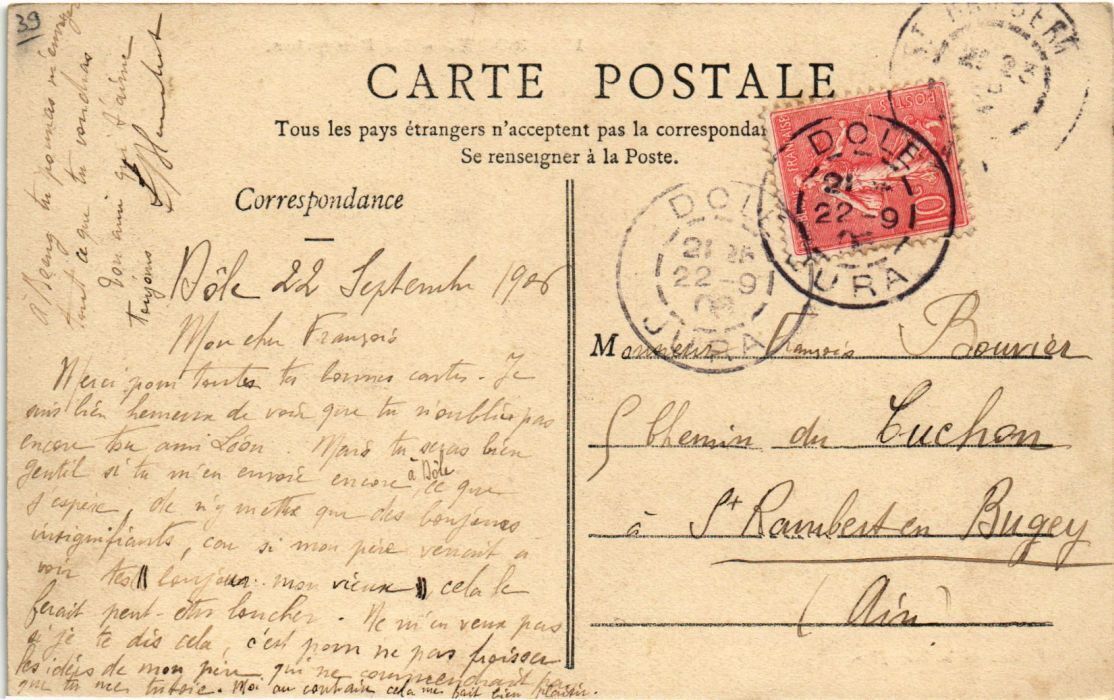 39
CARTE POSTALE
Tous les pays étrangers n'acceptent pas la
Se renseigner à la Poste.
Correspondance
Dôle 22 Septembre 1906
Mon cher François
Merci pour toutes tes bonnes cartes. Je
suis bien heureux de voir que tu n'oublies pas
encore ton ami Léon Mais tu seras bien
gentil si tu m'en envoie encore à Dôle, ce que
j'espère, de n'y mettre que des bonjours
insignifiants, car si mon père venait à
voir tes "bonjour mon vieux", cela le
ferait peut-être loucher. Ne m'en veux pas
si je te dis cela, c'est pour ne pas froisser
les idées de mon père qui ne comprendrait pas
que tu me tutoie. Moi au contraire cela me fait bien plaisir.
à Bourg tu pourras m'envoyer
tout ce que tu voudras
Ton ami qui t'aime
toujours
Monsieur François Bouvier
5 Chemin du Tuchon
à St Rambert en Bugey
(Ain)
DOLE
21
22-9
JURA
DOLE
21
22-9
JURA
POSTES
10